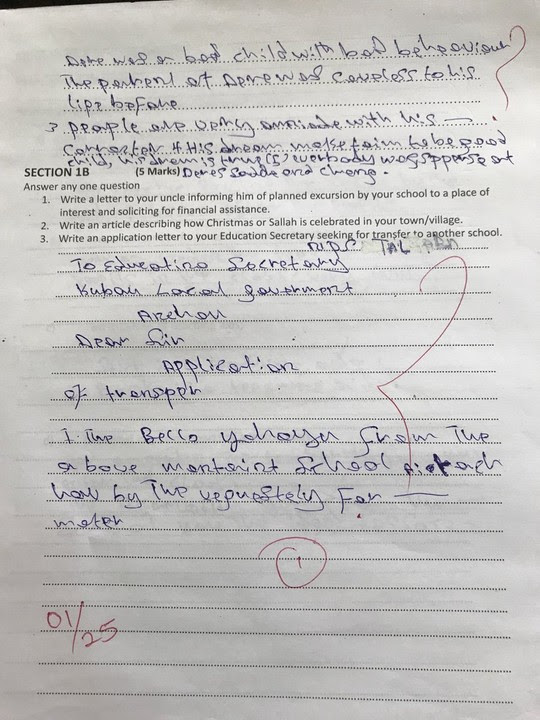 Dere was a bad child with bad behaviour
The parent of Dere was careless to his
life before
3 people are very
His dream make faim to be good
child, his dream is true
SECTION 1B (5 Marks)
Answer any one question
1. Write a letter to your uncle informing him of planned excursion by your school to a place of
interest and soliciting for financial assistance.
2. Write an article describing how Christmas or Sallah is celebrated in your town/village.
3. Write an application letter to your Education Secretary seeking for transfer to another school.
To Educatino Secretary
Kubau Local goverment
Anchau
Dear Sir
Application
of transper
I. The Becco yohayu From The
above montaint School
how by The For
meter
1
01/25